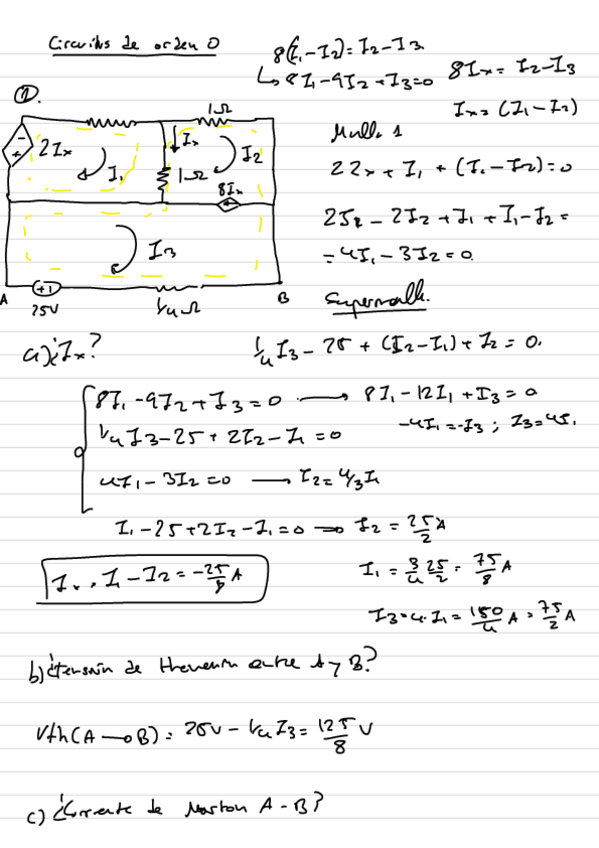 Circuitos de orden 0
8(I₁-I₂)=I₂-I₃
↳ 8I₁-9I₂+I₃=0
8Ix = I₂-I₃
Ix = (I₁-I₂)
①.
1Ω
- + 2Ix
I₁
↓Ix
I₂
1Ω
8Ix
I₃
A
25V
1/4 Ω
B
Malla 1
2Ix + I₁ + (I₁-I₂)=0
2I₁ - 2I₂ + I₁ + I₁-I₂ =
= 4I₁ - 3I₂ = 0.
Supermalla.
a) ¿Ix?
1/4 I₃ - 25 + (I₂-I₁) + I₂ = 0.
8I₁ -9I₂ + I₃ = 0 → 8I₁ -12I₁ + I₃ = 0
-4I₁ = -I₃ ; I₃ = 4I₁
1/4 I₃ -25 + 2I₂ - I₁ = 0
4I₁ - 3I₂ = 0 → I₂ = 4/3 I₁
I₁ - 25 + 2I₂ - I₁ = 0 → I₂ = 25/2 A
Ix = I₁ - I₂ = -25/8 A
I₁ = 3/4 25/2 = 75/8 A
I₃ = 4·I₁ = 150/4 A = 75/2 A
b) ¿tensión de thevenin entre A y B?
Vth(A→B) = 25V - 1/4 I₃ = 125/8 V
c) ¿Corriente de Norton A-B?